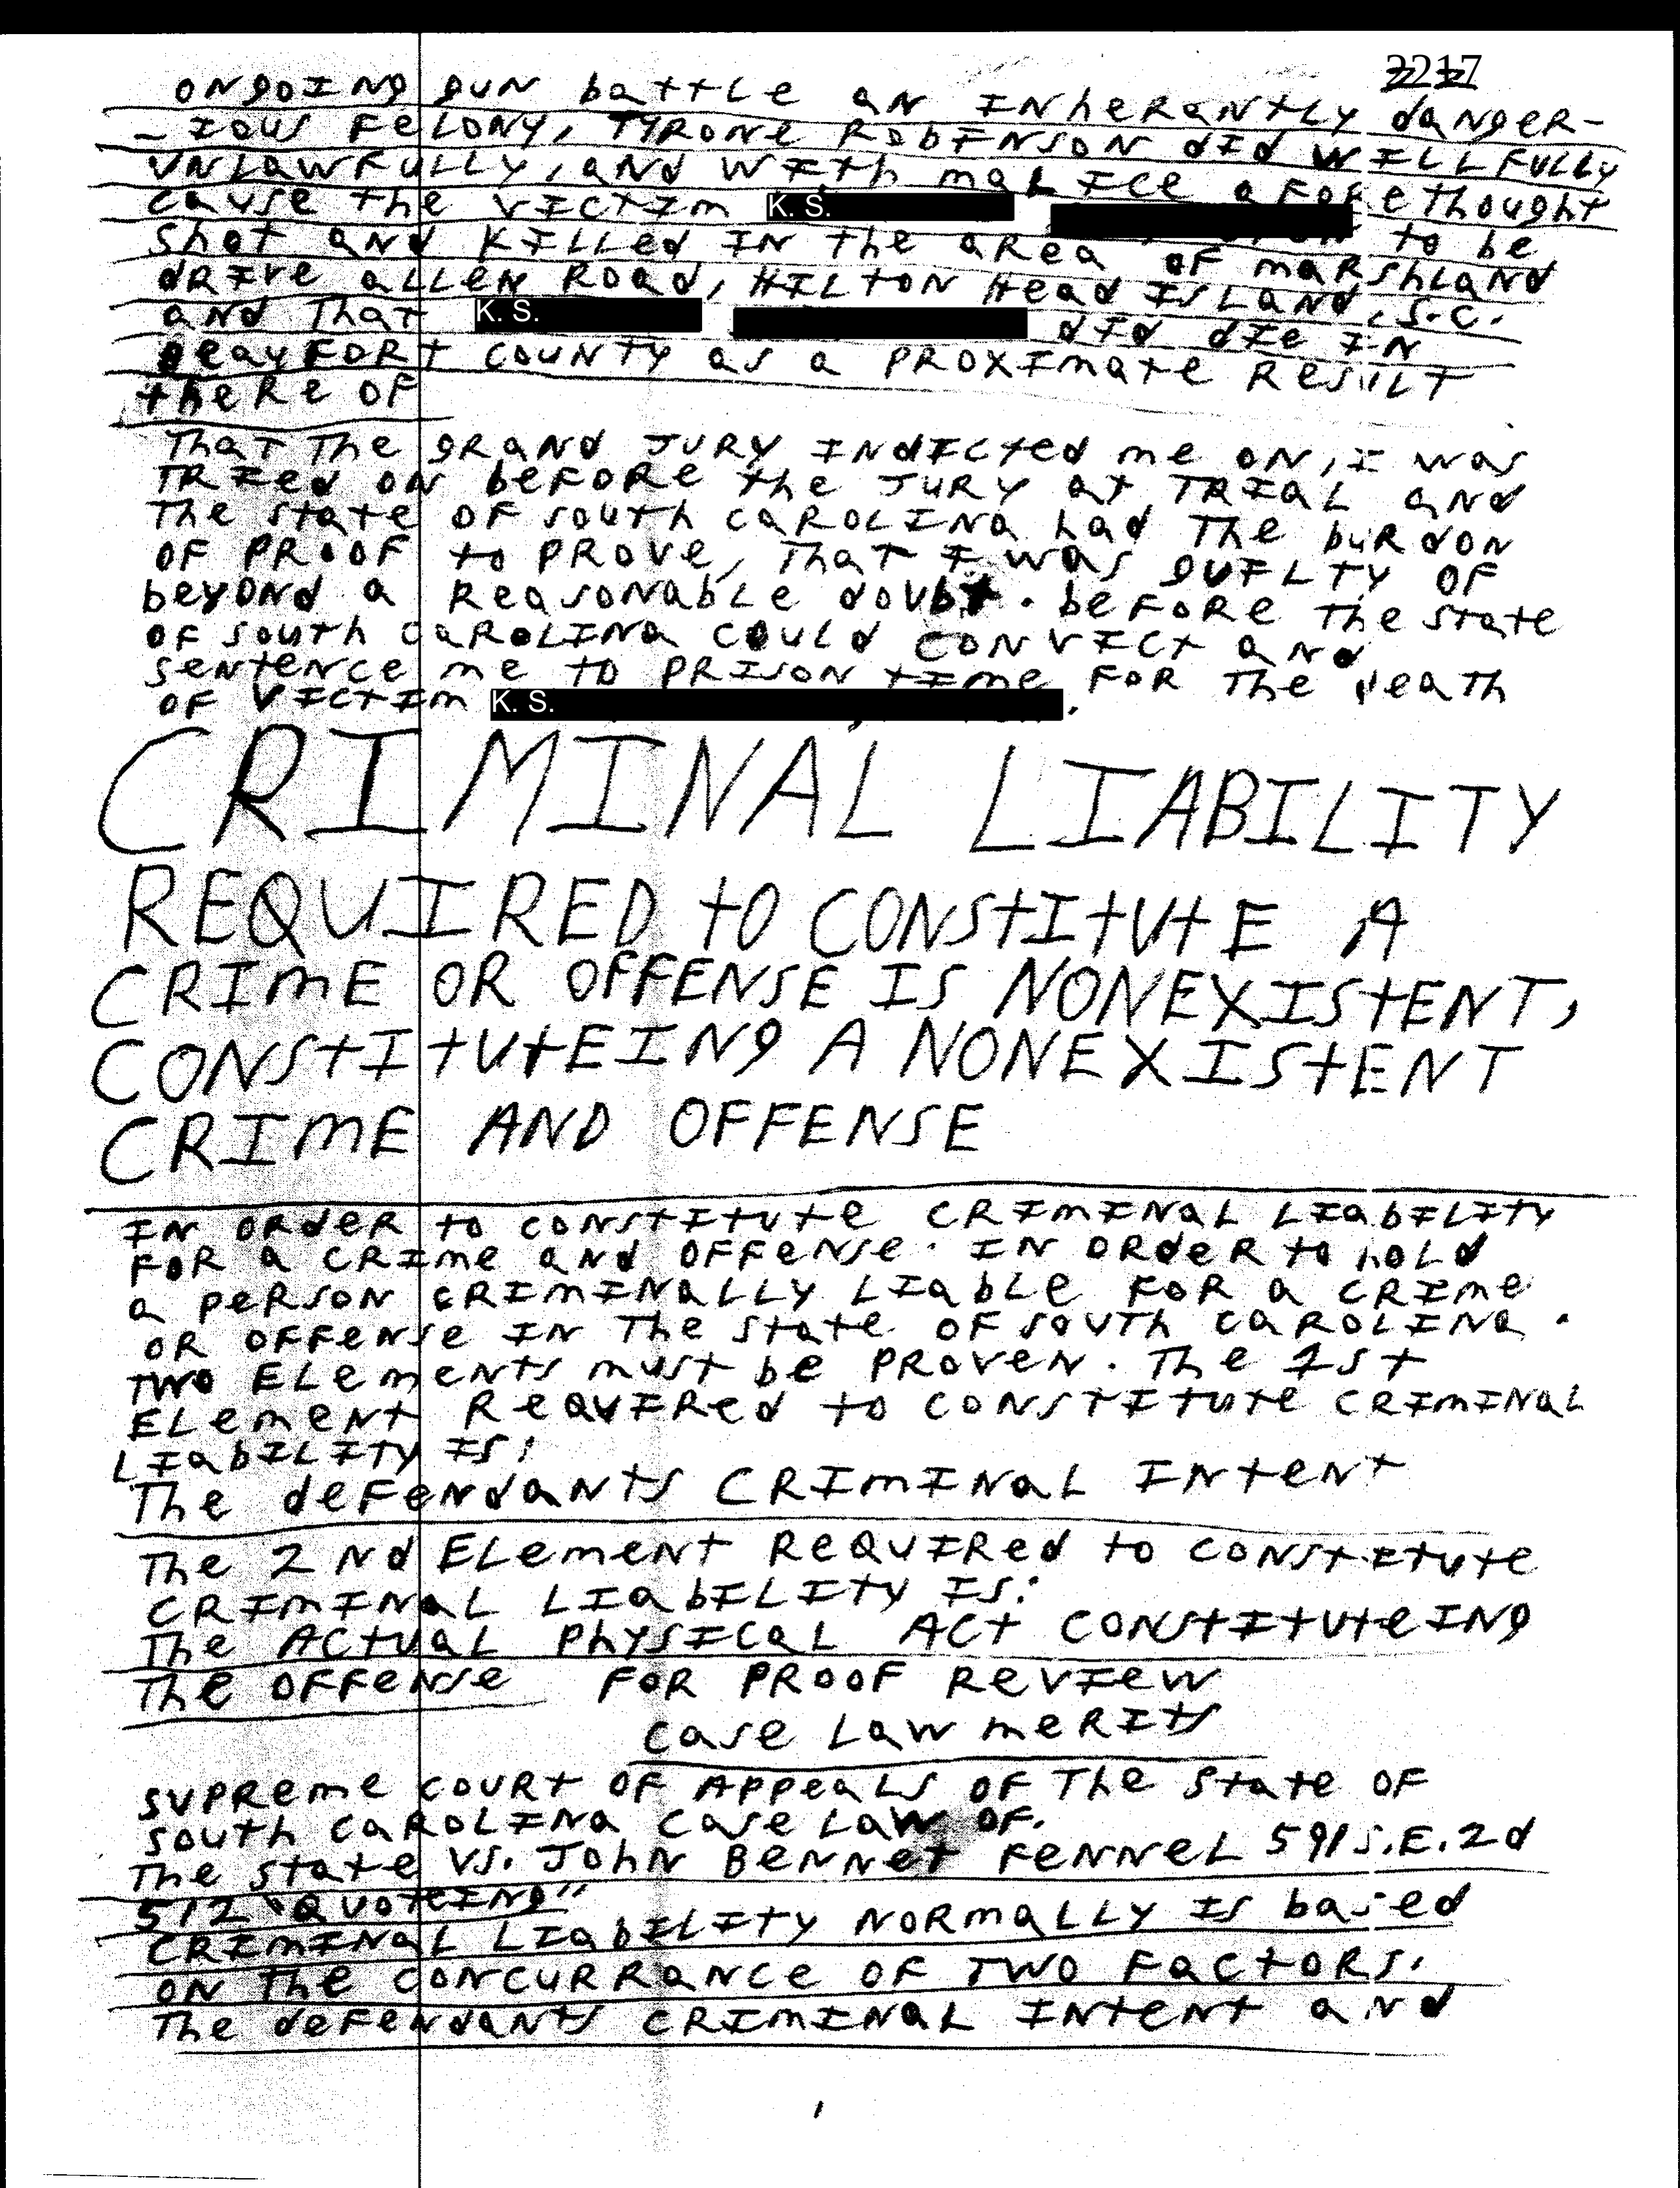 2217
ONGOING GUN battLe aN INheRaNtLy daNgeR-
- IOUS FeLONY, TYRONe RObINSON dId WILLFULLy
UNLawFULLy, aNd WIth maLIce aFoRethought
cause the VIctIm K. S. to be
Shot aNd KILLed IN the aRea OF maRShLaNd
dRIve aLLeN Road, HILtON Head ISLaNd, S.C.
aNd That K. S. dId dIe IN
beauFORt COUNty as a PROXImate ResuLT
theRe OF
That The gRaNd JURy INdIcted me ON, I was
TRIed ON beFORe the JURy at TRIaL aNd
The state OF south CaROLINa had The buRdON
OF PROOF to PROve, That I was guILTy OF
beyoNd a ReasoNabLe doubt. beFORe The state
OF south CaROLINa CouLd CONvIct aNd
SeNteNce me to PRISON tIme FoR The death
OF VIctIm K. S. .
CRIMINAL LIABILITY
REQUIRED to CONStItUtE A
CRImE OR OFFENSE IS NONEXIStENT,
CONStItUtEINg A NONEXIStENT
CRImE AND OFFENSE
IN ORdeR to coNstItute CRImINaL LIabILIty
FoR a CRIme aNd OFFeNse. IN ORdeR to hoLd
a peRsoN cRImINaLLy LIabLe FoR a cRIme
OR OFFeNse IN The state OF south caROLINa.
two ELemeNts must be PRoveN. The 1st
ELemeNt RequIRed to coNstItute CRImINaL
LIabILIty IS:
The deFeNdaNts CRImINaL INteNt
The 2Nd ELemeNt RequIRed to coNstItute
CRImINaL LIabILIty IS:
The ActuaL PhysIcaL Act CoNstItuteINg
The OFFeNse FoR PROOF RevIew
Case Law meRIts
SupReme couRt OF AppeaLs OF The State OF
South CaROLINa Case Law OF.
The state VS. JohN BeNNet FeNNeL 591 S.E.2d
512 "QuoteINg"
CRImINaL LIabILIty NoRmaLLy IS based
ON the coNcuRRaNce OF Two FactoRs.
The deFeNdaNts CRImINaL INteNt aNd